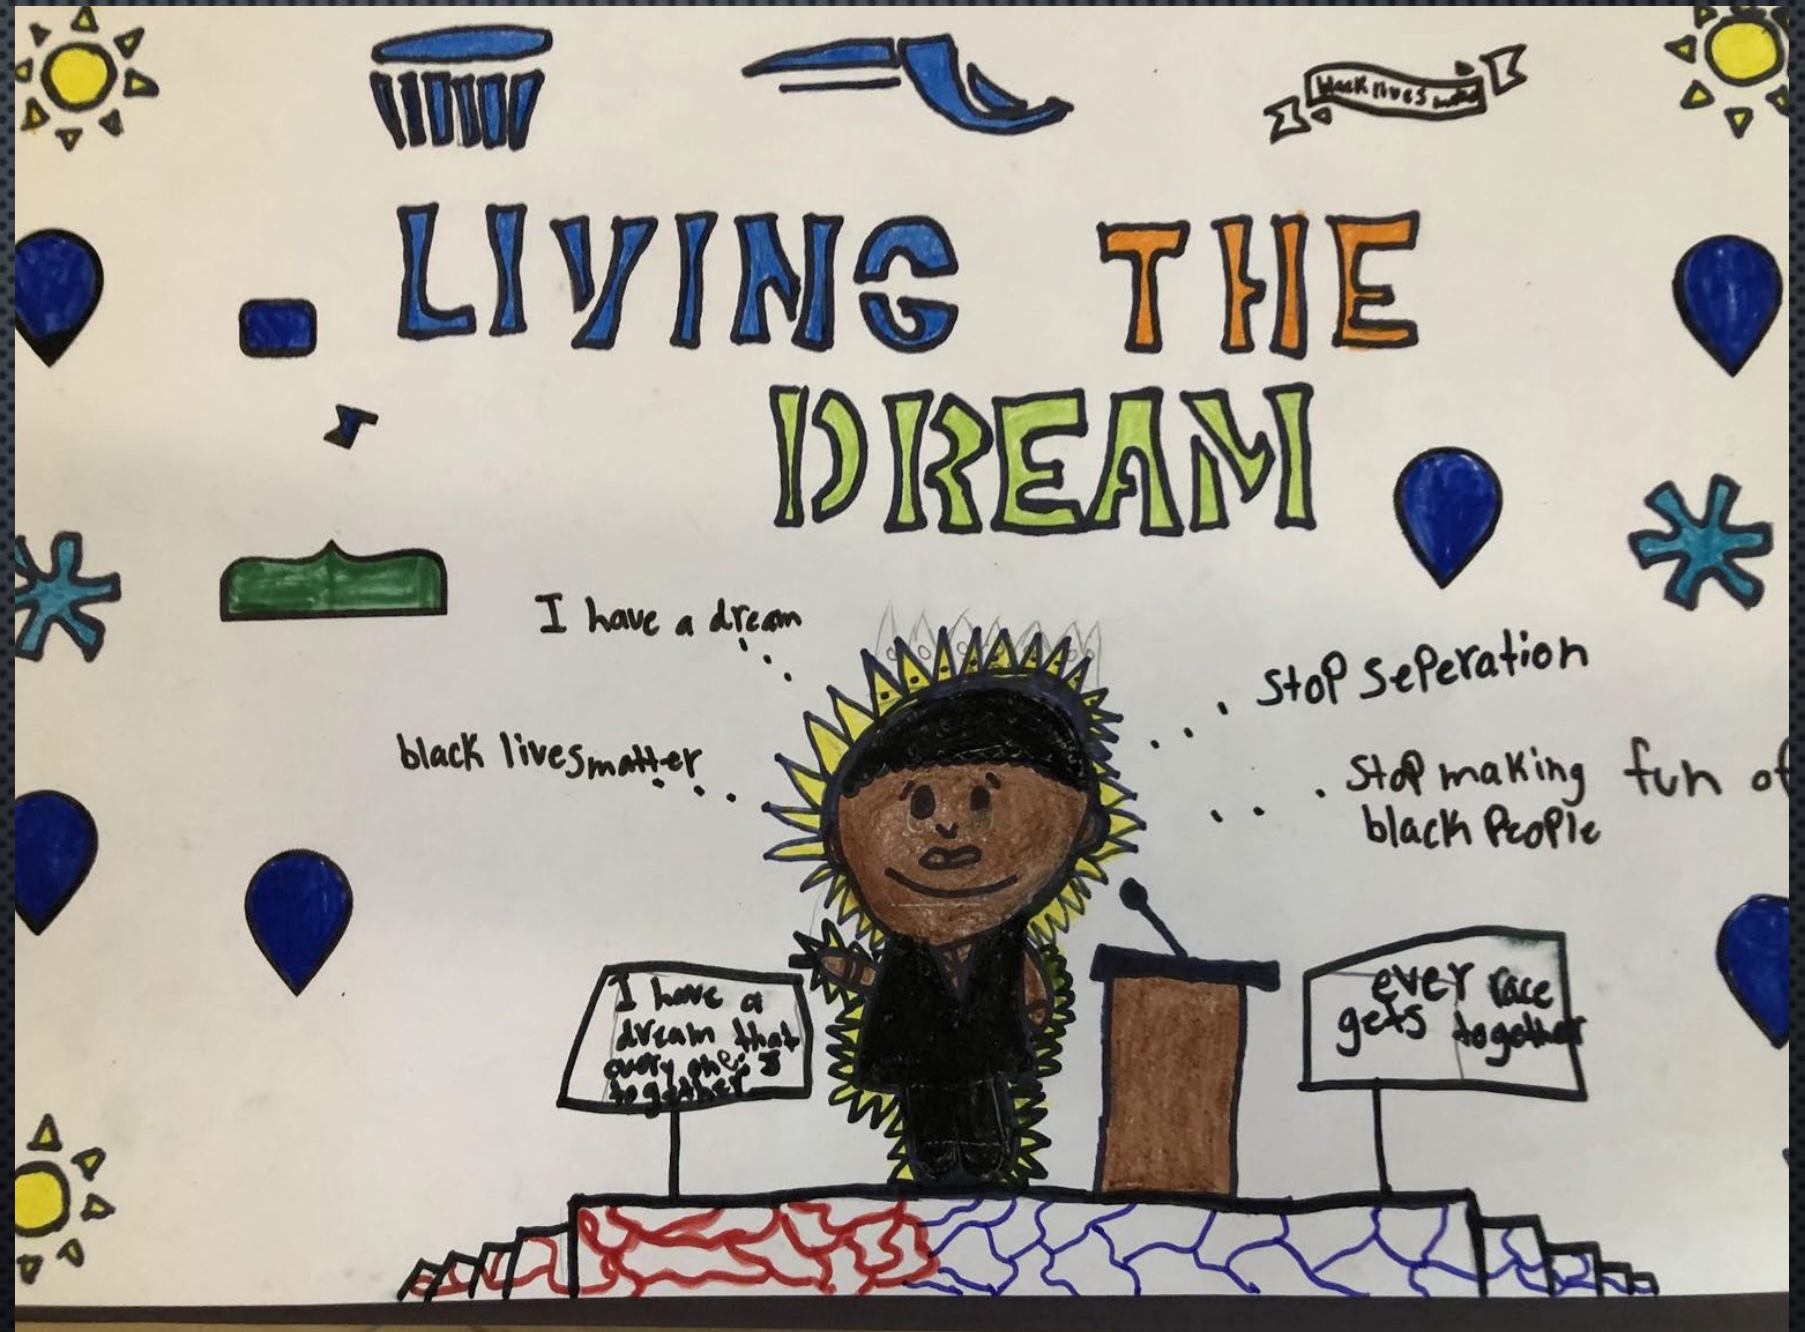 black lives matter
LIVING THE
DREAM
I have a dream
stop seperation
black lives matter
stop making fun of
black people
I have a
dream that
every one is
together
ever race
gets together